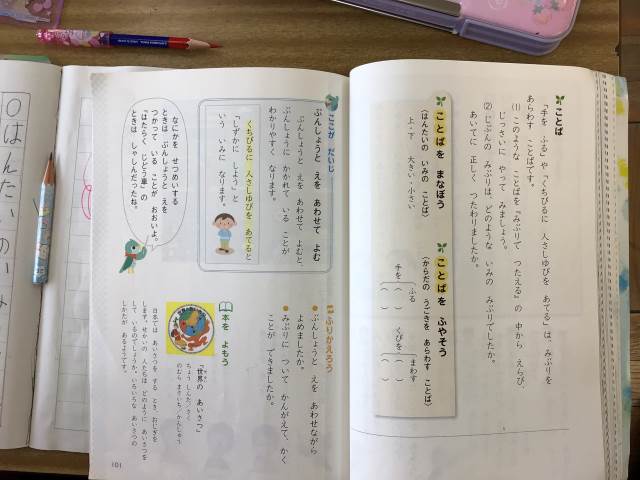 ことば
「手を ふる」や「くちびるに 人さしゆびを あてる」は、みぶりを
あらわす ことばです。
(1) このような ことばを『みぶりで つたえる』の 中から えらび、
じっさいに やって みましょう。
(2) じぶんの みぶりは、どのような いみの みぶりでしたか。
あいてに 正しく つたわりましたか。
ことばを まなぼう
〈はんたいの いみの ことば〉
上・下 大きい・小さい
ことばを ふやそう
〈からだの うごきを あらわす ことば〉
手を ふる
( )
( )
くびを まわす
( )
( )
ここが だいじ
ぶんしょうと えを あわせて よむ
ぶんしょうと えを あわせて よむと、
ぶんしょうに かかれて いる ことが
わかりやすく なります。
くちびるに 人さしゆびを あてると
「しずかに しよう」と
いう いみに なります。
なにかを せつめいする
ときは、ぶんしょうと えを
つかって いる ことが おおいよ。
「はたらく じどう車」の
ときは しゃしんだったね。
ふりかえろう
ぶんしょうと えを あわせながら
よめましたか。
みぶりに ついて かんがえて、かく
ことが できましたか。
本を よもう
「世界の あいさつ」
ちょう しんた/さく
のむら まさいち/かんしゅう
日本では、あいさつを する とき、おじぎを
します。せかいの 人たちは どのように あいさつを
して いるのでしょうか。いろいろな あいさつの
しかたが あるようです。
101
〇はんたいのいみ